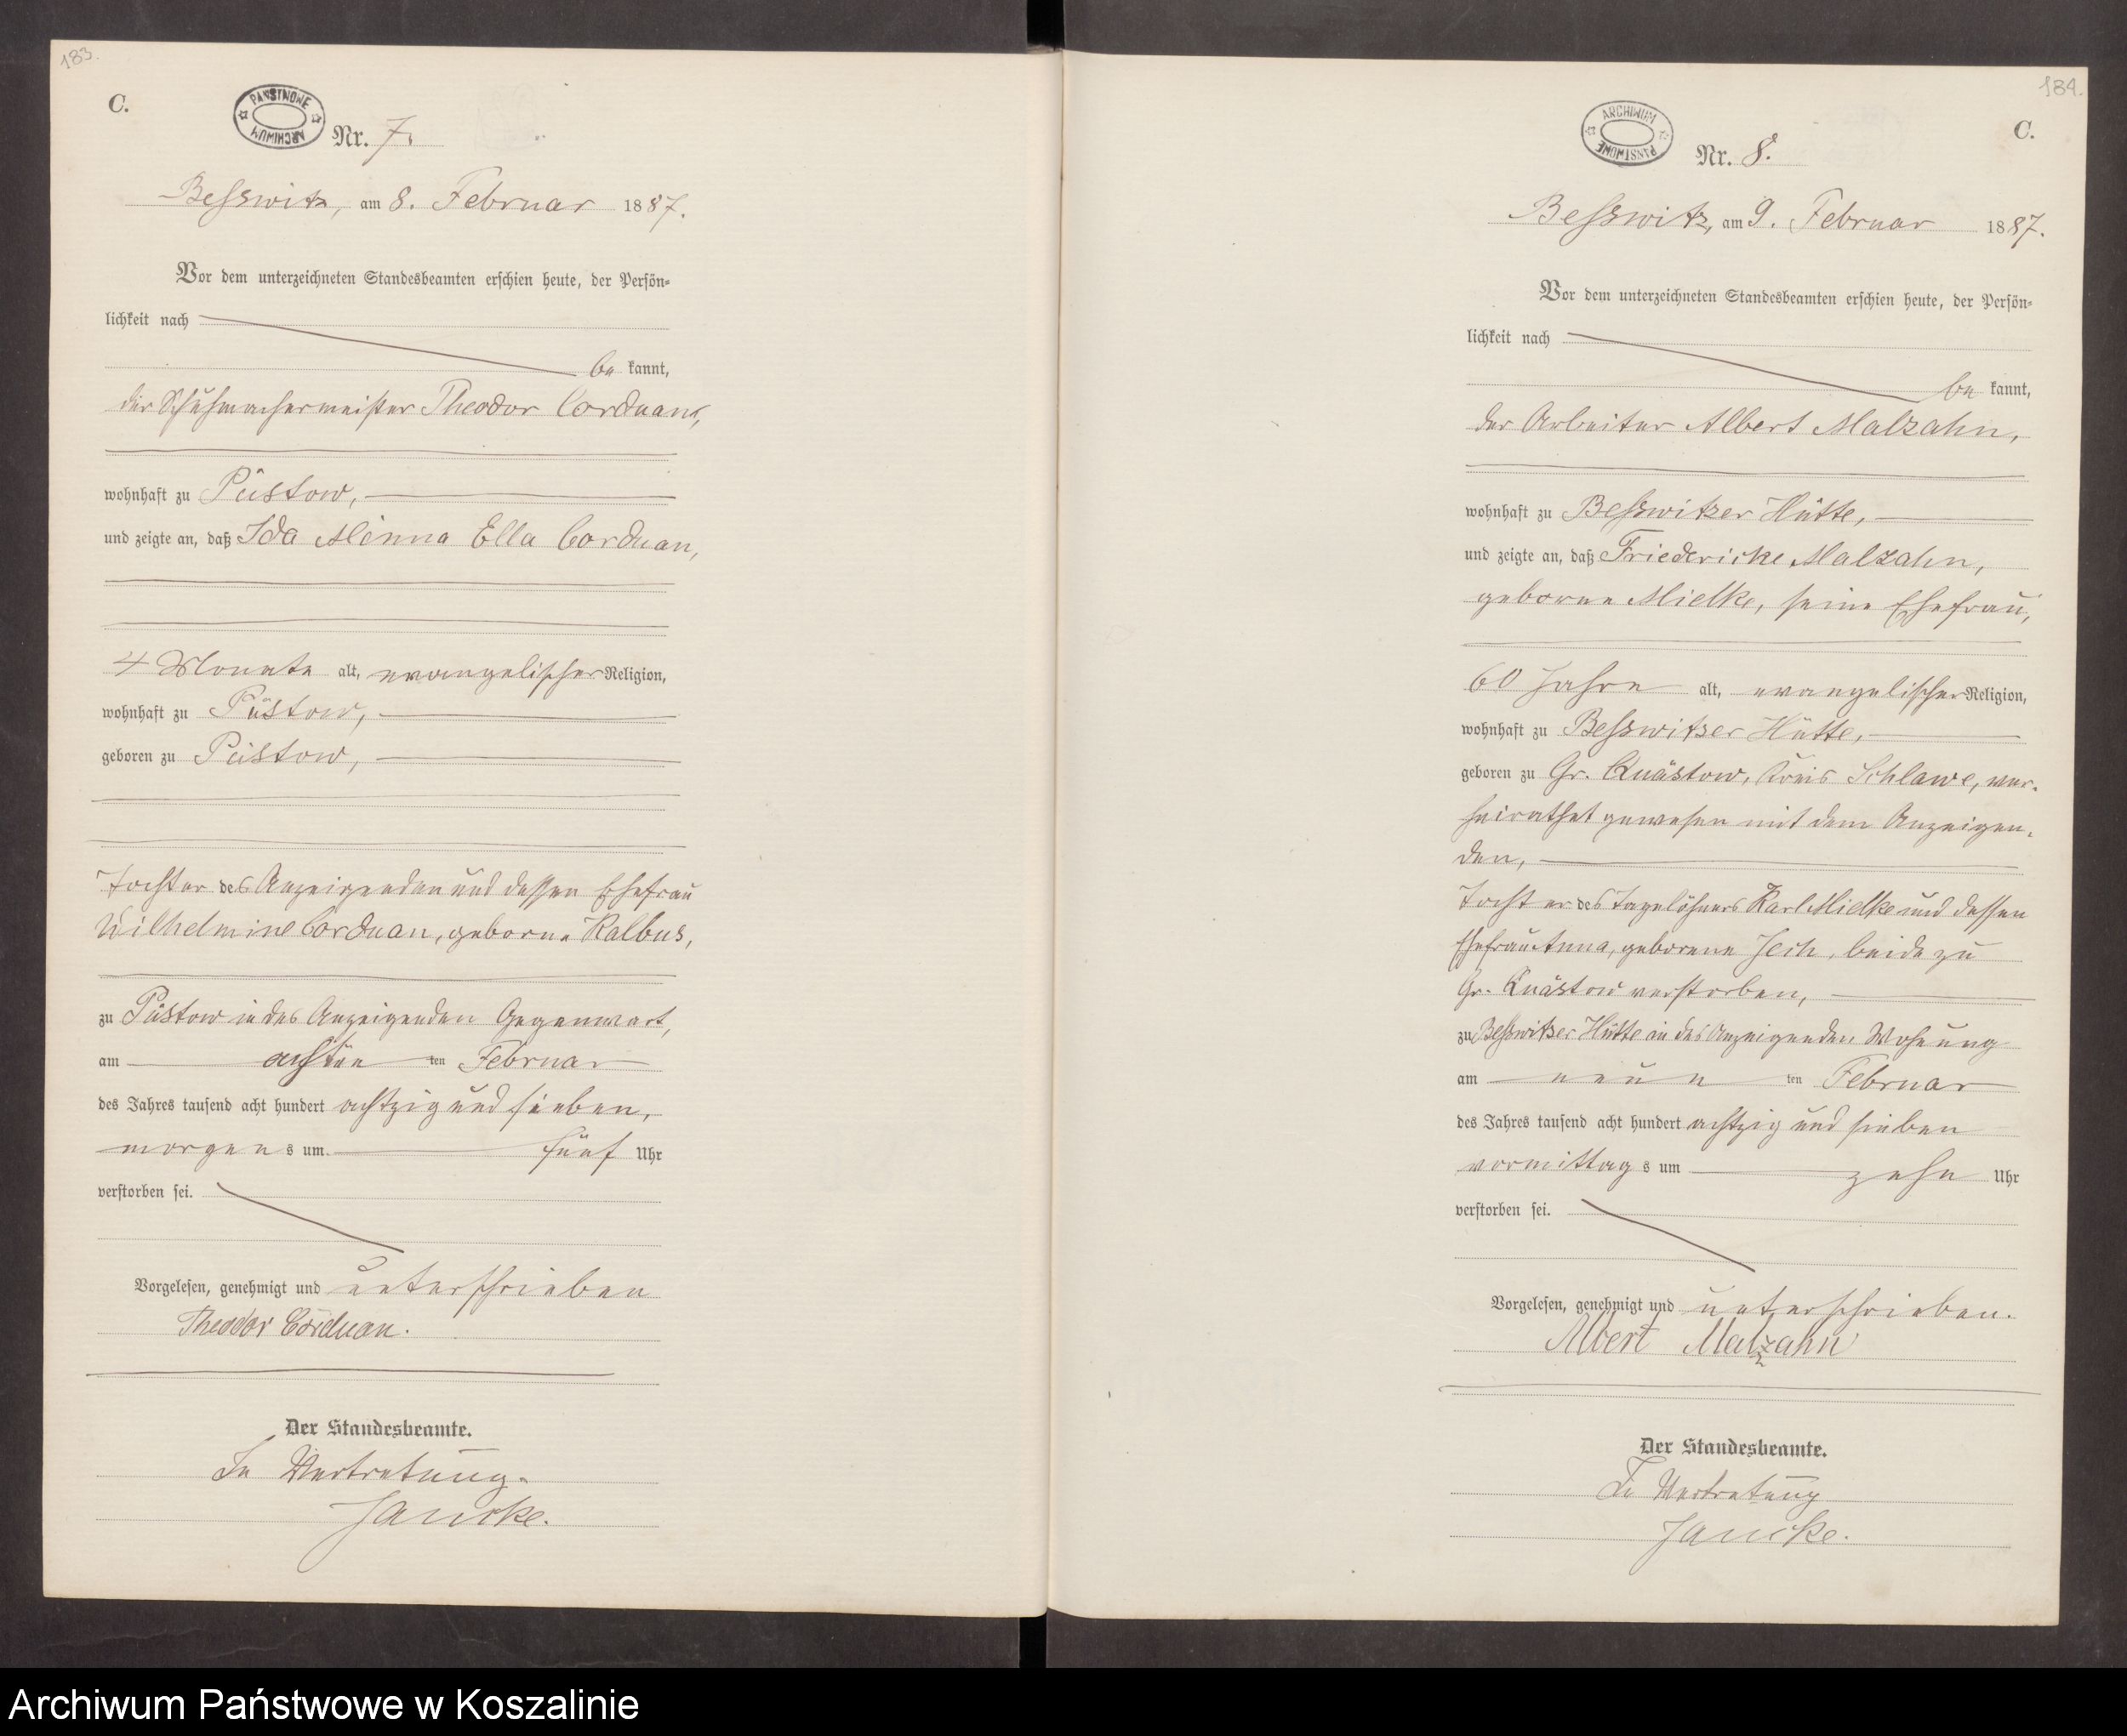 183.
C.
PAŃSTWOWE
ARCHIWUM
Nr. 7.
Beßwitz, am 8. Februar 1887.
Vor dem unterzeichneten Standesbeamten erschien heute, der Persön-
lichkeit nach
be kannt,
der Schuhmachermeister Theodor Corduan,
wohnhaft zu Püstow,
und zeigte an, daß Ida Minna Ella Corduan,
4 Monate alt, evangelischer Religion,
wohnhaft zu Püstow,
geboren zu Püstow,
Tochter des Anzeigenden und dessen Ehefrau
Wilhelmine Corduan, geborne Kalbus,
zu Püstow in des Anzeigenden Gegenwart,
am achten ten Februar
des Jahres tausend acht hundert achtzig und sieben,
morgens um fünf Uhr
verstorben sei.
Vorgelesen, genehmigt und unterschrieben
Theodor Corduan.
Der Standesbeamte.
In Vertretung.
Jancke.
184.
C.
ARCHIWUM
PAŃSTWOWE
Nr. 8.
Beßwitz, am 9. Februar 1887.
Vor dem unterzeichneten Standesbeamten erschien heute, der Persön-
lichkeit nach
be kannt,
der Arbeiter Albert Malzahn,
wohnhaft zu Beßwitzer Hütte,
und zeigte an, daß Friedericke Malzahn,
geborne Mielke, seine Ehefrau,
60 Jahre alt, evangelischer Religion,
wohnhaft zu Beßwitzer Hütte,
geboren zu Gr. Quästow, Kreis Schlawe, ver-
heirathet gewesen mit dem Anzeigen-
den,
Tochter des Tagelöhners Karl Mielke und dessen
Ehefrau Anna, geborene Jech, beide zu
Gr. Quästow verstorben,
zu Beßwitzer Hütte in des Anzeigenden Wohnung
am neun ten Februar
des Jahres tausend acht hundert achtzig und sieben
vormittags um zehn Uhr
verstorben sei.
Vorgelesen, genehmigt und unterschrieben.
Albert Malzahn
Der Standesbeamte.
In Vertretung
Jancke.
Archiwum Państwowe w Koszalinie